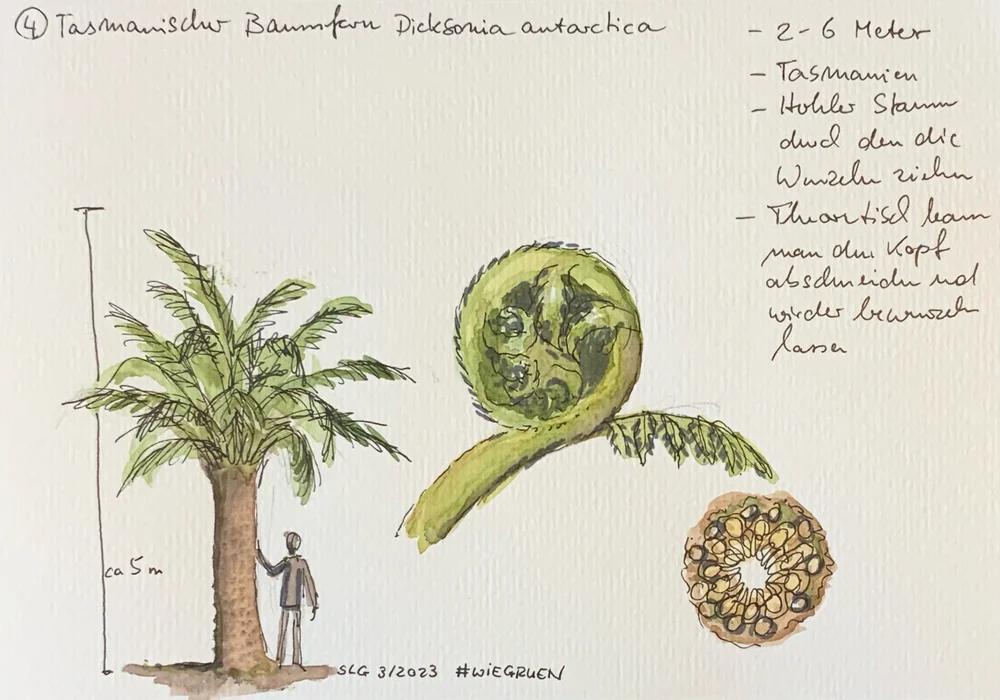 ④ Tasmanischer Baumfarn Dicksonia antarctica
- 2-6 Meter
- Tasmanien
- Hohler Stamm
durch den die
Wurzeln ziehen
- Theoretisch kann
man den Kopf
abschneiden und
wieder bewurzeln
lassen
ca 5 m
SLG 3/2023 #WIEGRUEN